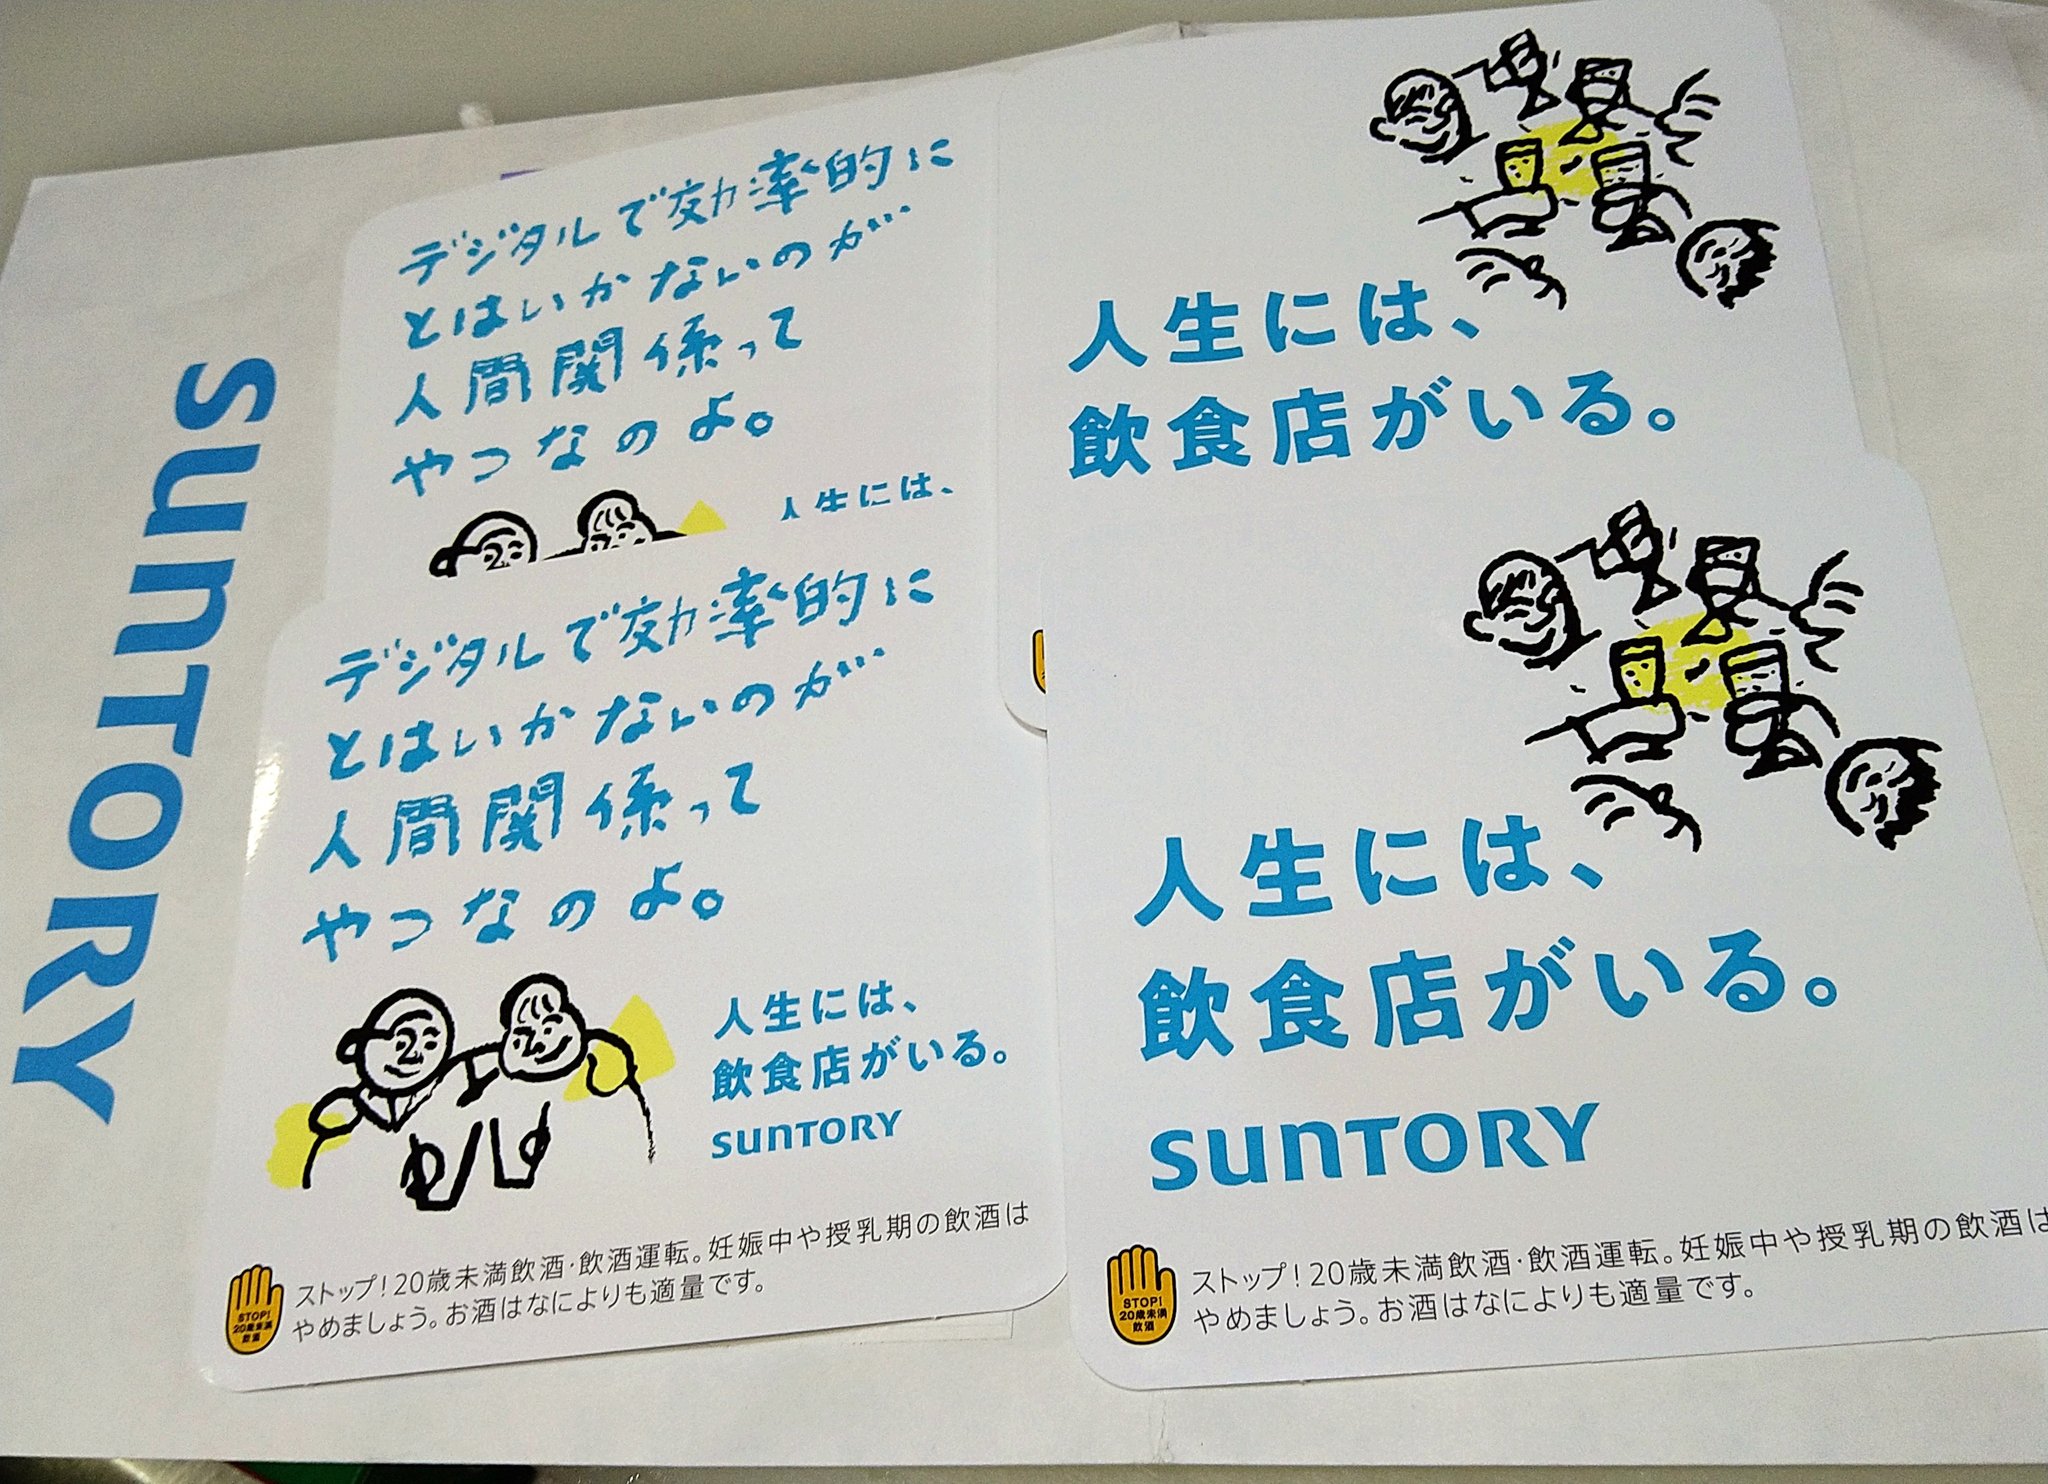 SUNTORY
デジタルで効率的に
とはいかないのが…
人間関係って
やつなのよ。
人生には、
デジタルで効率的に
とはいかないのが…
人間関係って
やつなのよ。
人生には、
飲食店がいる。
SUNTORY
STOP!
20歳未満
飲酒
ストップ!20歳未満飲酒·飲酒運転。妊娠中や授乳期の飲酒は
やめましょう。お酒はなによりも適量です。
人生には、
飲食店がいる。
人生には、
飲食店がいる。
SUNTORY
STOP!
20歳未満
飲酒
ストップ!20歳未満飲酒·飲酒運転。妊娠中や授乳期の飲酒は
やめましょう。お酒はなによりも適量です。